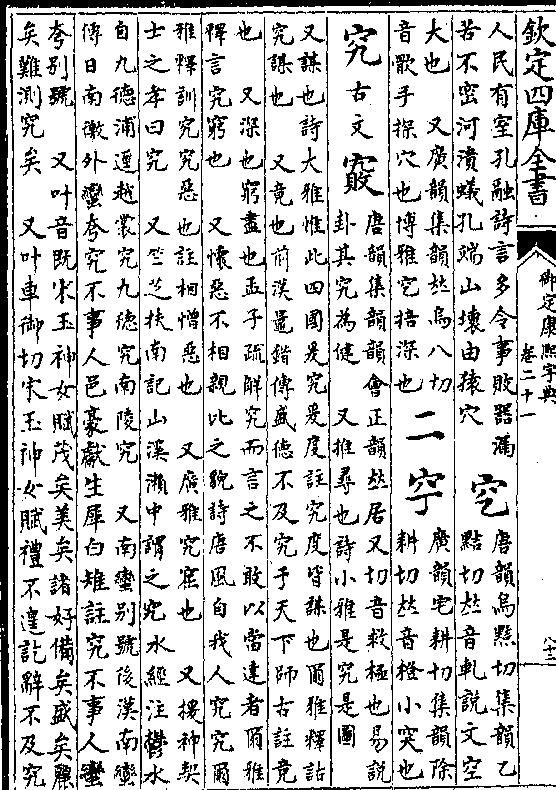 欽定四庫全書
御定康熙字典
卷二十一
八十三
人民有室孔融詩言多令事敗器漏
苦不密河潰蟻孔端山壞由猿穴
穵
唐韻烏黠切集韻乙
黠切𠀤音軋說文空
大也 又廣韻集韻𠀤烏八切
音歇手探穴也博雅穵捾深也
二
廣韻宅耕切集韻除
耕切𠀤音橙小突也
究 古文
唐韻集韻韻會正韻𠀤居又切音救極也易說
卦其究為健 又推尋也詩小雅是究是圖
又謀也詩大雅惟此四國爰究爰度註究度皆謀也爾雅釋詁
究謀也 又竟也前漢鼂錯傳盛德不及究于天下師古註竟
也 又深也窮盡也孟子疏解究而言之不敢以當達者爾雅
釋言究窮也 又懷惡不相親比之貌詩唐風自我人究究爾
雅釋訓究究惡也註相憎惡也 又廣雅究窟也 又援神契
士之孝曰究 又竺芝扶南記山溪瀨中謂之究水經注鬱水
自九德浦逕越裳究九德究南陵究 又南蠻別號後漢南蠻
傳曰南徼外蠻夸究不事人邑豪獻生犀白雉註究不事人蠻
夸別號 又叶音既宋玉神女賦茂矣美矣諸好備矣盛矣麗
矣難測究矣 又叶車御切宋玉神女賦禮不遑訖辭不及究